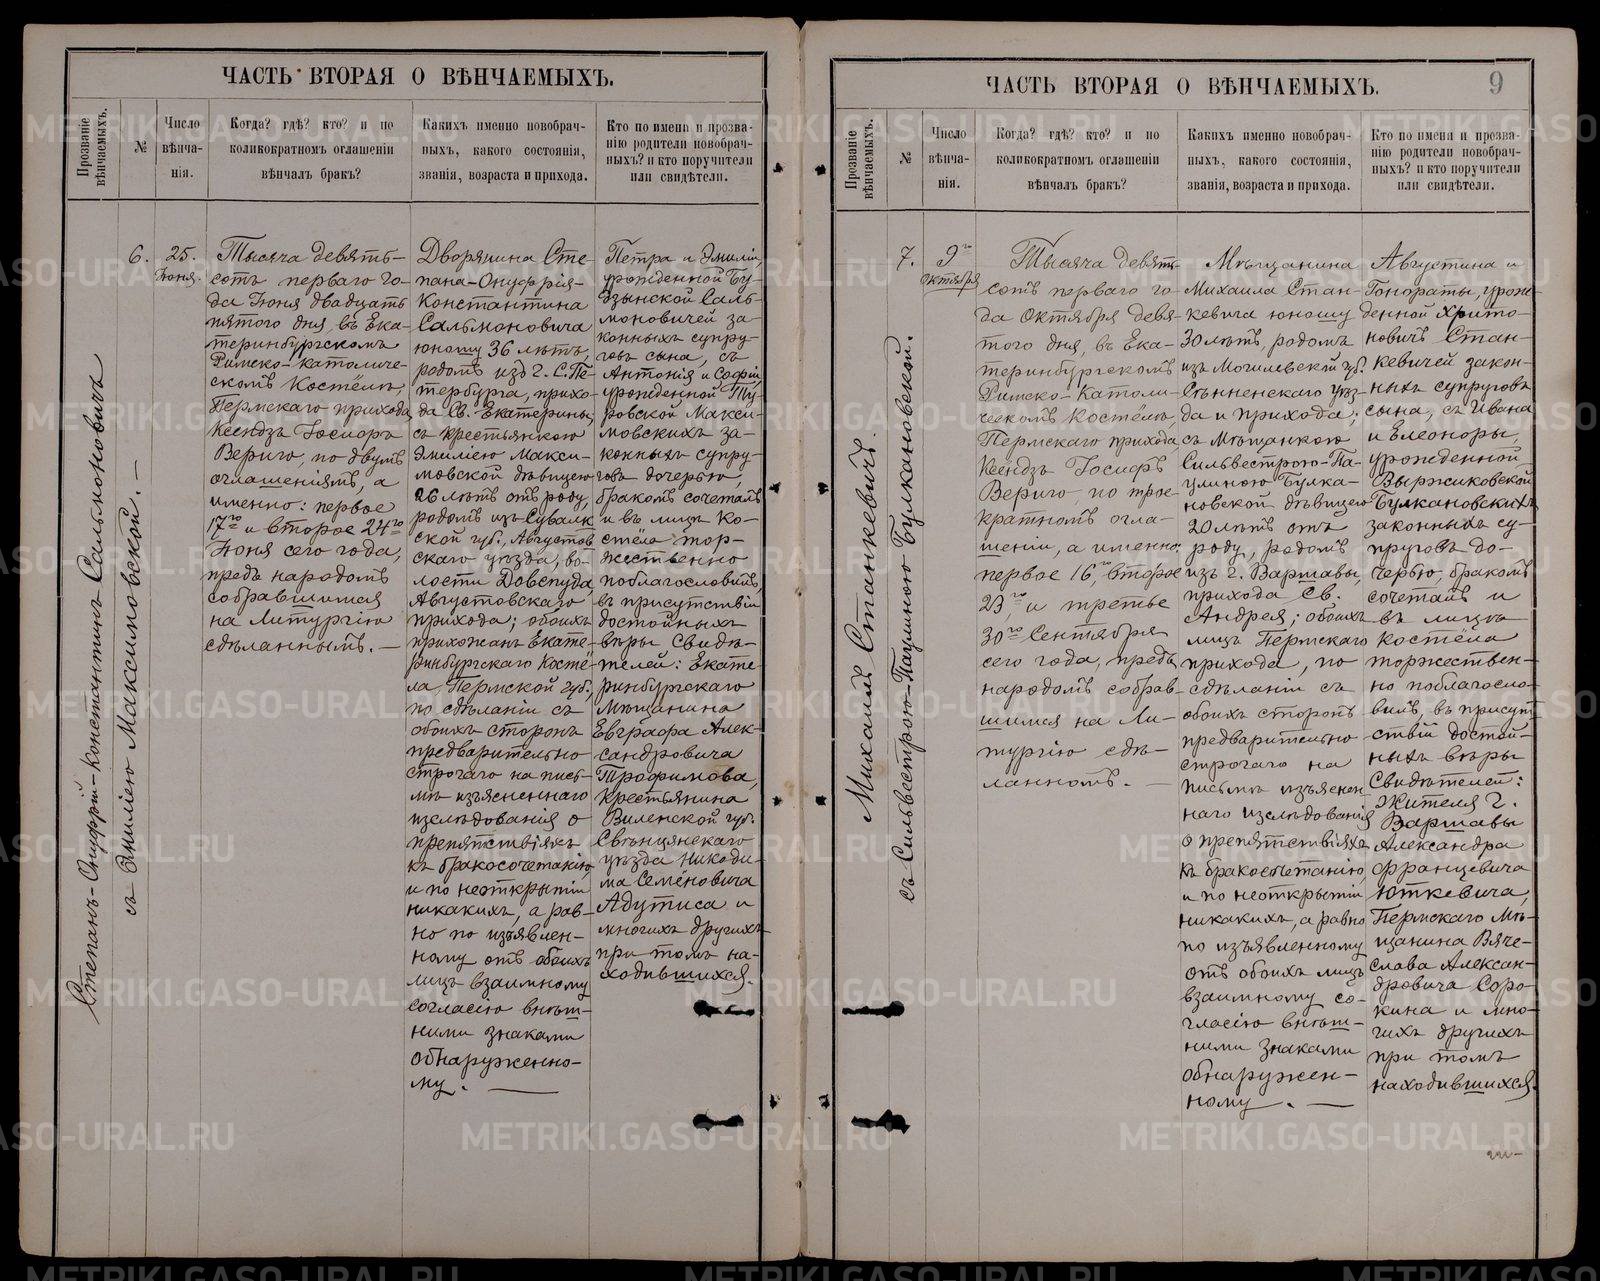 ЧАСТЬ ВТОРАЯ О ВѢНЧАЕМЫХЪ.
Прозваніе вѣнчаемыхъ.
№
Число
вѣнча-
нія.
Когда? гдѣ? кто? и по
коликократномъ оглашеніи
вѣнчалъ бракъ?
Какихъ именно новобрач-
ныхъ, какого состоянія,
званія, возраста и прихода.
Кто по имени и прозва-
нію родители новобрач-
ныхъ? и кто поручители
или свидѣтели.
Степанъ-Онуфрій-Константинъ Сальмоновичъ
съ Эмиліею Максимовской. —
6.
25.
Іюня.
Тысяча девять-
сотъ перваго го-
да Іюня двадцать
пятого дня, въ Ека-
теринбургскомъ
Римско-католиче-
скомъ Костёлѣ,
Пермскаго прихода
Ксендзъ Іосифъ
Вериго, по двумъ
оглашеніямъ, а
именно: первое
17го и второе 24го
Іюня сего года,
предъ народомъ
собравшимся
на Литургію
сдѣланнымъ. —
Дворянина Сте-
пана-Онуфрія-
Константина
Сальмоновича
юношу 36 лѣтъ,
родомъ изъ г. С. Пе-
тербурга, прихо-
да Св. Екатерины,
съ крестьянкою
Эмиліею Макси-
мовской дѣвицею
26 лѣтъ отъ роду,
родомъ изъ Сувалк
ской губ., Августов
скаго уѣзда, во-
лости Довспуда,
Августовскаго
прихода; обоихъ
прихожанъ Екате-
ринбургскаго Костё-
ла, Пермской губ.,
по сдѣланіи съ
обоихъ сторонъ
предварительно
строгаго на пись-
мѣ изъясненнаго
изслѣдованія о
препятствіяхъ
къ бракосочетанію,
и по неоткрытіи
никакихъ, а рав-
но по изъявлен-
ному отъ обоихъ
лицъ взаимному
согласію внѣш-
ними знаками
обнаруженно-
му. —
Петра и Эмиліи,
урожденной Бу-
дзынской Саль-
моновичей за-
конныхъ супру-
говъ сына, съ
Антонія и Софіи
урожденной Ту-
ровской Макси-
мовскихъ за-
конныхъ супру-
говъ дочерью,
бракомъ сочеталъ
и въ лицѣ Ко-
стёла тор-
жественно
поблагословилъ,
въ присутствіи
достойныхъ
вѣры Свидѣ-
телей: Екате-
ринбургскаго
Мѣщанина
Евграфа Алек-
сандровича
Трофимова,
Крестьянина
Виленской губ.
Свѣнцянскаго
уѣзда Никоди-
ма Семёновича
Адутиса и
многихъ другихъ
при томъ на-
ходившихся.
ЧАСТЬ ВТОРАЯ О ВѢНЧАЕМЫХЪ.
9
Прозваніе вѣнчаемыхъ.
№
Число
вѣнча-
нія.
Когда? гдѣ? кто? и по
коликократномъ оглашеніи
вѣнчалъ бракъ?
Какихъ именно новобрач-
ныхъ, какого состоянія,
званія, возраста и прихода.
Кто по имени и прозва-
нію родители новобрач-
ныхъ? и кто поручители
или свидѣтели.
Михаилъ Станкевичъ.
съ Сильвестрою-Паулиною Булкановской.
7.
9го
Октября
Тысяча девять
сотъ перваго го-
да Октября девя-
того дня, въ Ека-
теринбургскомъ
Римско-Католи-
ческомъ Костёлѣ,
Пермскаго прихода,
Ксендзъ Іосифъ
Вериго, по трое-
кратномъ огла-
шеніи, а именно:
первое 16го, второе
23го и третье
30го Сентября
сего года, предъ
народомъ собрав-
шимся на Ли-
тургію сдѣ-
ланномъ. —
Мѣщанина
Михаила Стан-
кевича юношу
30 лѣтъ, родомъ
изъ Могилевской губ.
Сѣнненскаго уѣз-
да и прихода;
съ Мѣщанкою
Сильвестрою-Па-
улиною Булка-
новской дѣвицею
20 лѣтъ отъ
роду, родомъ
изъ г. Варшавы,
прихода Св.
Андрея; обоихъ
лицъ Пермскаго
прихода, по
сдѣланіи съ
обоихъ сторонъ
предварительно
строгаго на
письмѣ изъяснен
наго изслѣдованія
о препятствіяхъ
къ бракосочетанію,
и по неоткрытіи
никакихъ, а равно
по изъявленному
отъ обоихъ лицъ
взаимному со-
гласію внѣш-
ними знаками
обнаружен-
ному. —
Августина и
Гонораты, урож-
денной Хрито-
новичъ Стан-
кевичей закон-
ныхъ супруговъ
сына, съ Ивана
и Елеоноры,
урожденной
Выржиковской
Булкановскихъ
законныхъ су-
пруговъ до-
черью, бракомъ
сочеталъ и
въ лицѣ
Костёла
торжествен-
но поблагосло-
вилъ, въ присут
ствіи достой-
ныхъ вѣры
Свидѣтелей:
Жителя г.
Варшавы
Александра
Францевича
Юткевича,
Пермскаго Мѣ-
щанина Вяче-
слава Алексан-
дровича Соро-
кина и мно-
гихъ другихъ
при томъ
находившихся.
METRIKI.GASO-URAL.RU